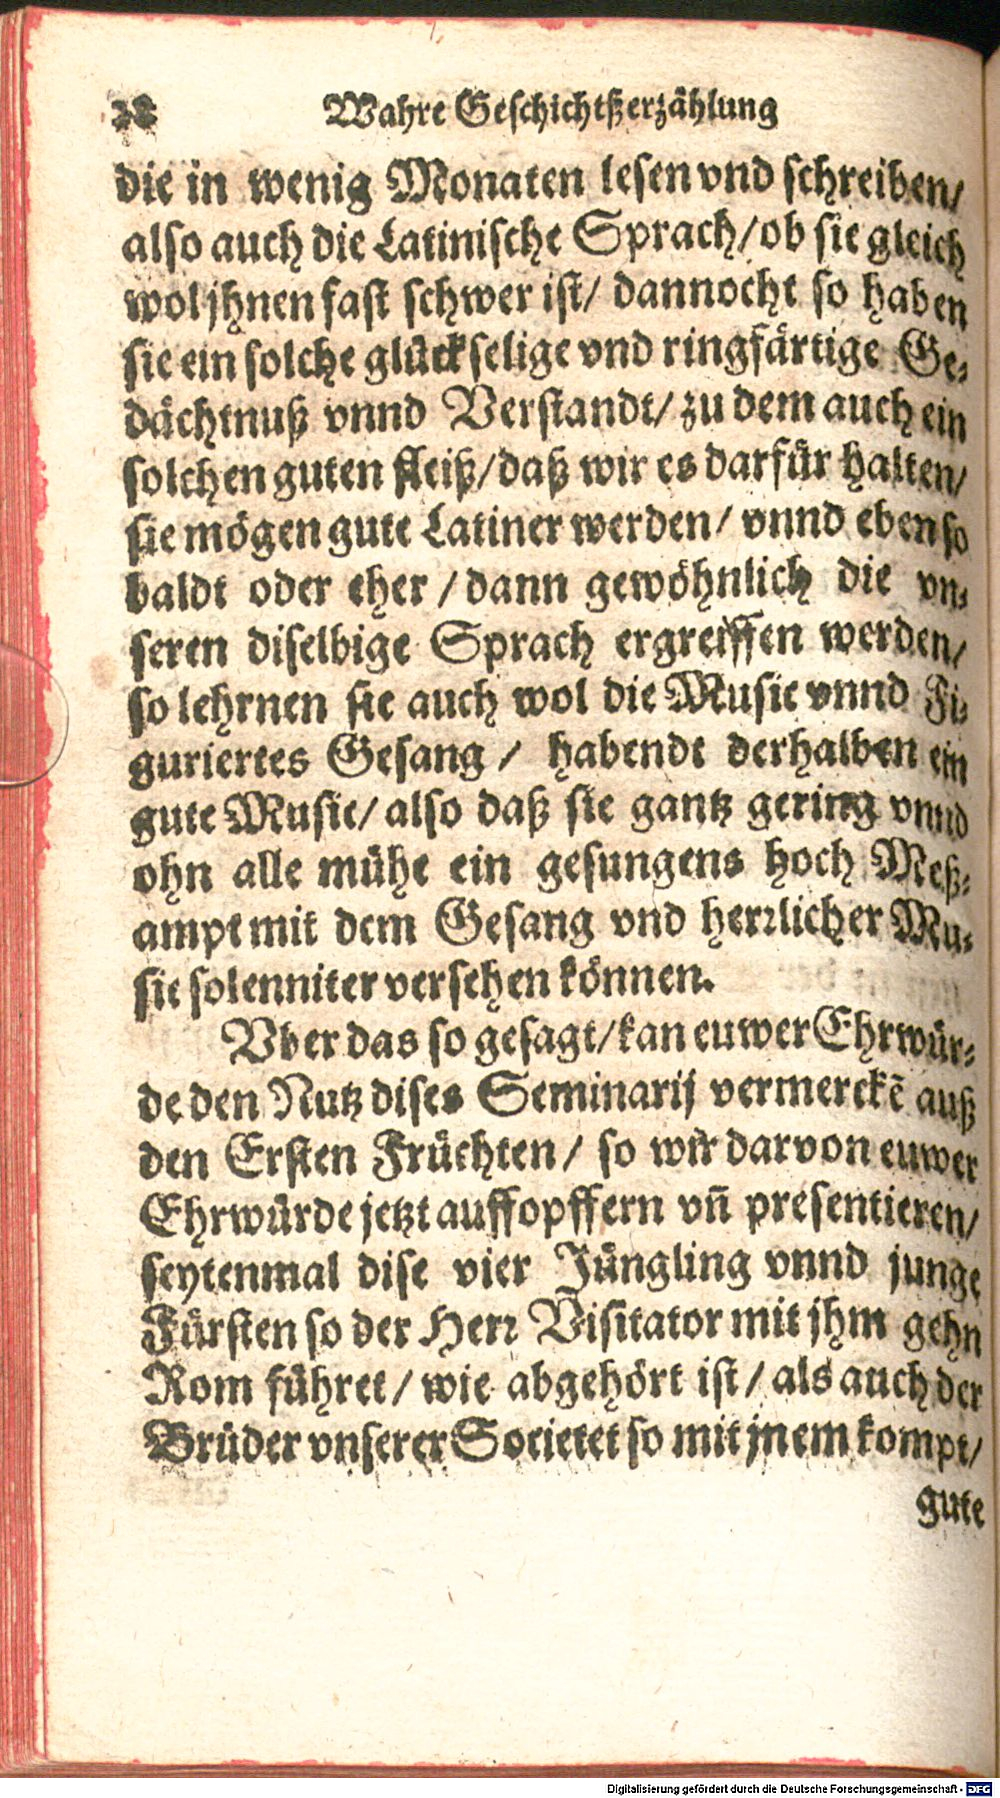 28 Wahre Geschichtßerzählung
die in wenig Monaten lesen vnd schreiben/
also auch die Latinische Sprach/ ob sie gleich
wol jhnen fast schwer ist/ dannocht so haben
sie ein solche glückselige vnd ringfärtige Ge-
dächtnuß vnnd Verstandt/ zu dem auch ein
solchen guten fleiß/ daß wir es darfür halten/
sie mögen gute Latiner werden/ vnnd eben so
baldt oder eher / dann gewöhnlich die vn-
seren diselbige Sprach ergreiffen werden/
so lehrnen sie auch wol die Music vnnd Fi-
guriertes Gesang / habendt derhalben ein
gute Music/ also daß sie gantz gering vnnd
ohn alle mühe ein gesungens hoch Meß-
ampt mit dem Gesang vnd herrlicher Mu-
sic solenniter versehen können.
Vber das so gesagt/ kan euwer Ehrwür-
de den Nutz dises Seminarij vermerckẽ auß
den Ersten Früchten/ so wir darvon euwer
Ehrwürde jetzt auffopffern vñ presentieren/
seytenmal dise vier Jüngling vnnd junge
Fürsten so der Herr Visitator mit jhm gehn
Rom führet/ wie abgehört ist/ als auch der
Brüder vnserer Societet so mit jnem kompt/
gute
Digitalisierung gefördert durch die Deutsche Forschungsgemeinschaft - DFG